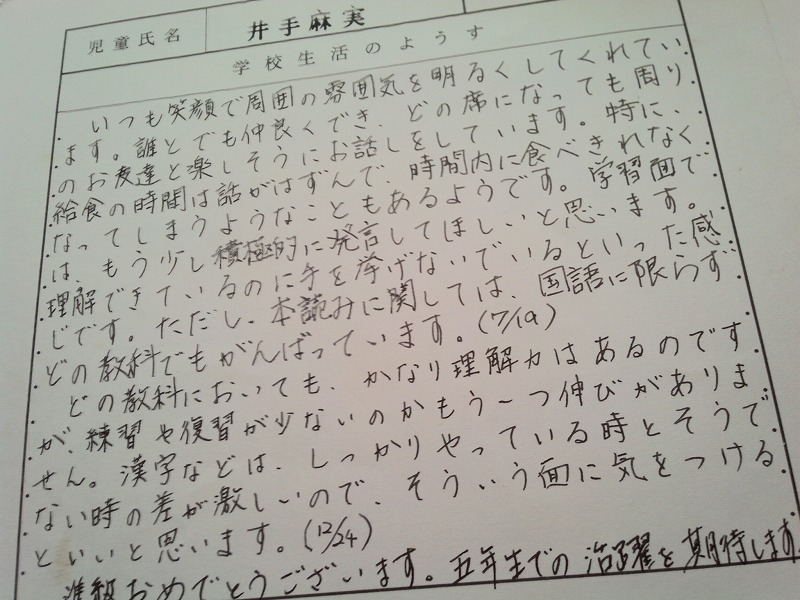 児童氏名 井手麻実
学校生活のようす
いつも笑顔で周囲の雰囲気を明るくしてくれてい
ます。誰とでも仲良くでき、どの席になっても周り
のお友達と楽しそうにお話しをしています。特に、
給食の時間は話がはずんで、時間内に食べきれなく
なってしまうようなこともあるようです。学習面で
は、もう少し積極的に発言してほしいと思います。
理解できているのに手を挙げないでいるといった感
じです。ただし、本読みに関しては、国語に限らず
どの教科でもがんばっています。(7/19)
どの教科においても、かなり理解力はあるのです
が、練習や復習が少ないのかもう一つ伸びがありま
せん。漢字などは、しっかりやっている時とそうで
ない時の差が激しいので、そういう面に気をつける
といいと思います。(12/24)
進級おめでとうございます。五年生での活躍を期待します